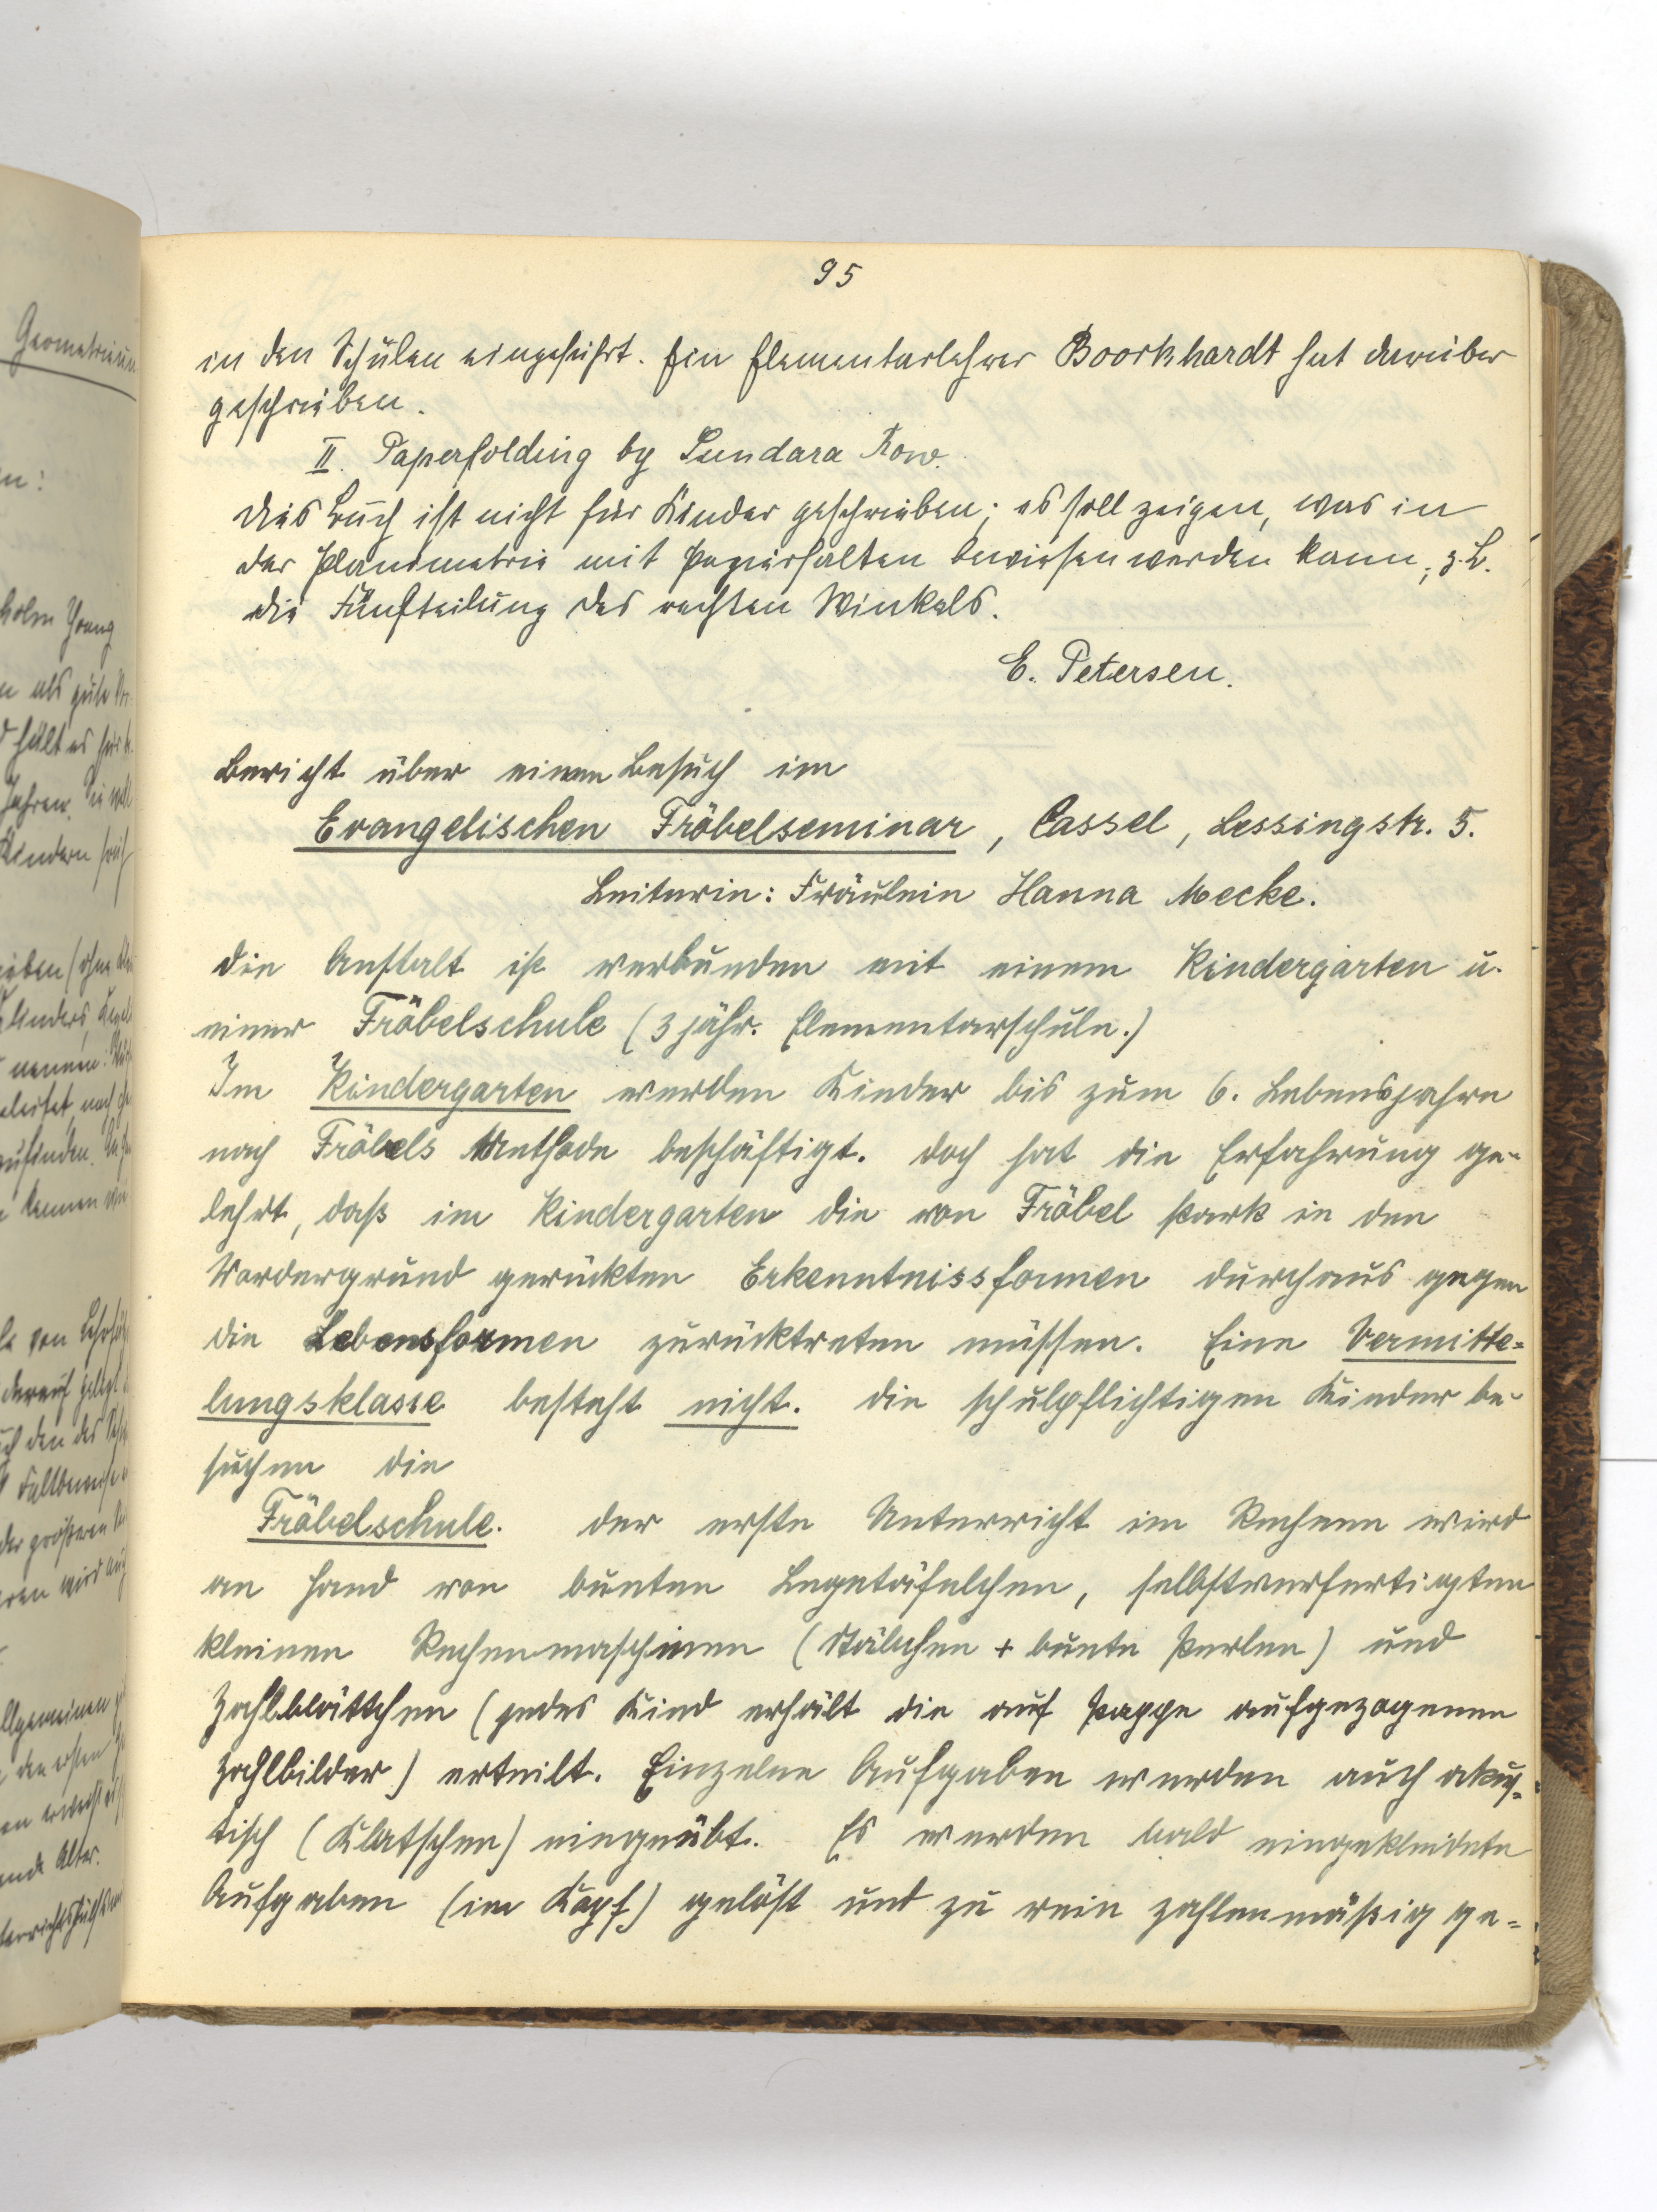 95
in den Schulen eingeführt. Ein Elementarlehrer Boorkhardt hat darüber
geschrieben.
II. Paperfolding by Sundara Row.
Das Buch ist nicht für Kinder geschrieben; es soll zeigen, was in
der Planimetrie mit Papierfalten bewiesen werden kann, z. B.
die Fünfteilung des rechten Winkels.
E. Petersen.
Bericht über einen Besuch im
Evangelischen Fröbelseminar, Cassel, Lessingstr. 5.
Leiterin: Fräulein Hanna Mecke.
Die Anstalt ist verbunden mit einem Kindergarten u.
einer Fröbelschule (3 jähr. Elementarschule.)
Im Kindergarten werden Kinder bis zum 6. Lebensjahre
nach Fröbels Methode beschäftigt. Doch hat die Erfahrung ge-
lehrt, daß im Kindergarten die von Fröbel stark in den
Vordergrund gerückten Erkenntnissformen durchaus gegen
die Lebensformen zurücktreten müssen. Eine Vermitte=
lungsklasse besteht nicht. Die schulpflichtigen Kinder be-
suchen die
Fröbelschule. Der erste Unterricht im Rechnen wird
an Hand von bunten Legetäfelchen, selbstverfertigten
kleinen Rechenmaschinen (Stäbchen + bunte Perlen) und
Zahlblättchen (jedes Kind erhält die auf Pappe aufgezogenen
Zahlbilder) erteilt. Einzelne Aufgaben werden auch akus=
tisch (Klatschen) eingeübt. Es werden bald eingekleidete
Aufgaben (im Kopf) gelöst und zu rein zahlenmäßig ge=